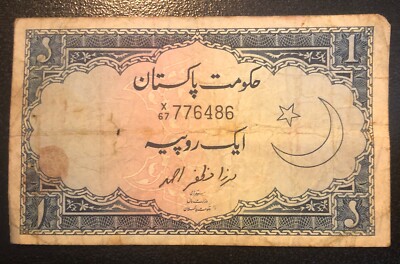 1
حکومت پاکستان
X/67 776486
ایک روپیہ
مرزا مظفر احمد
1